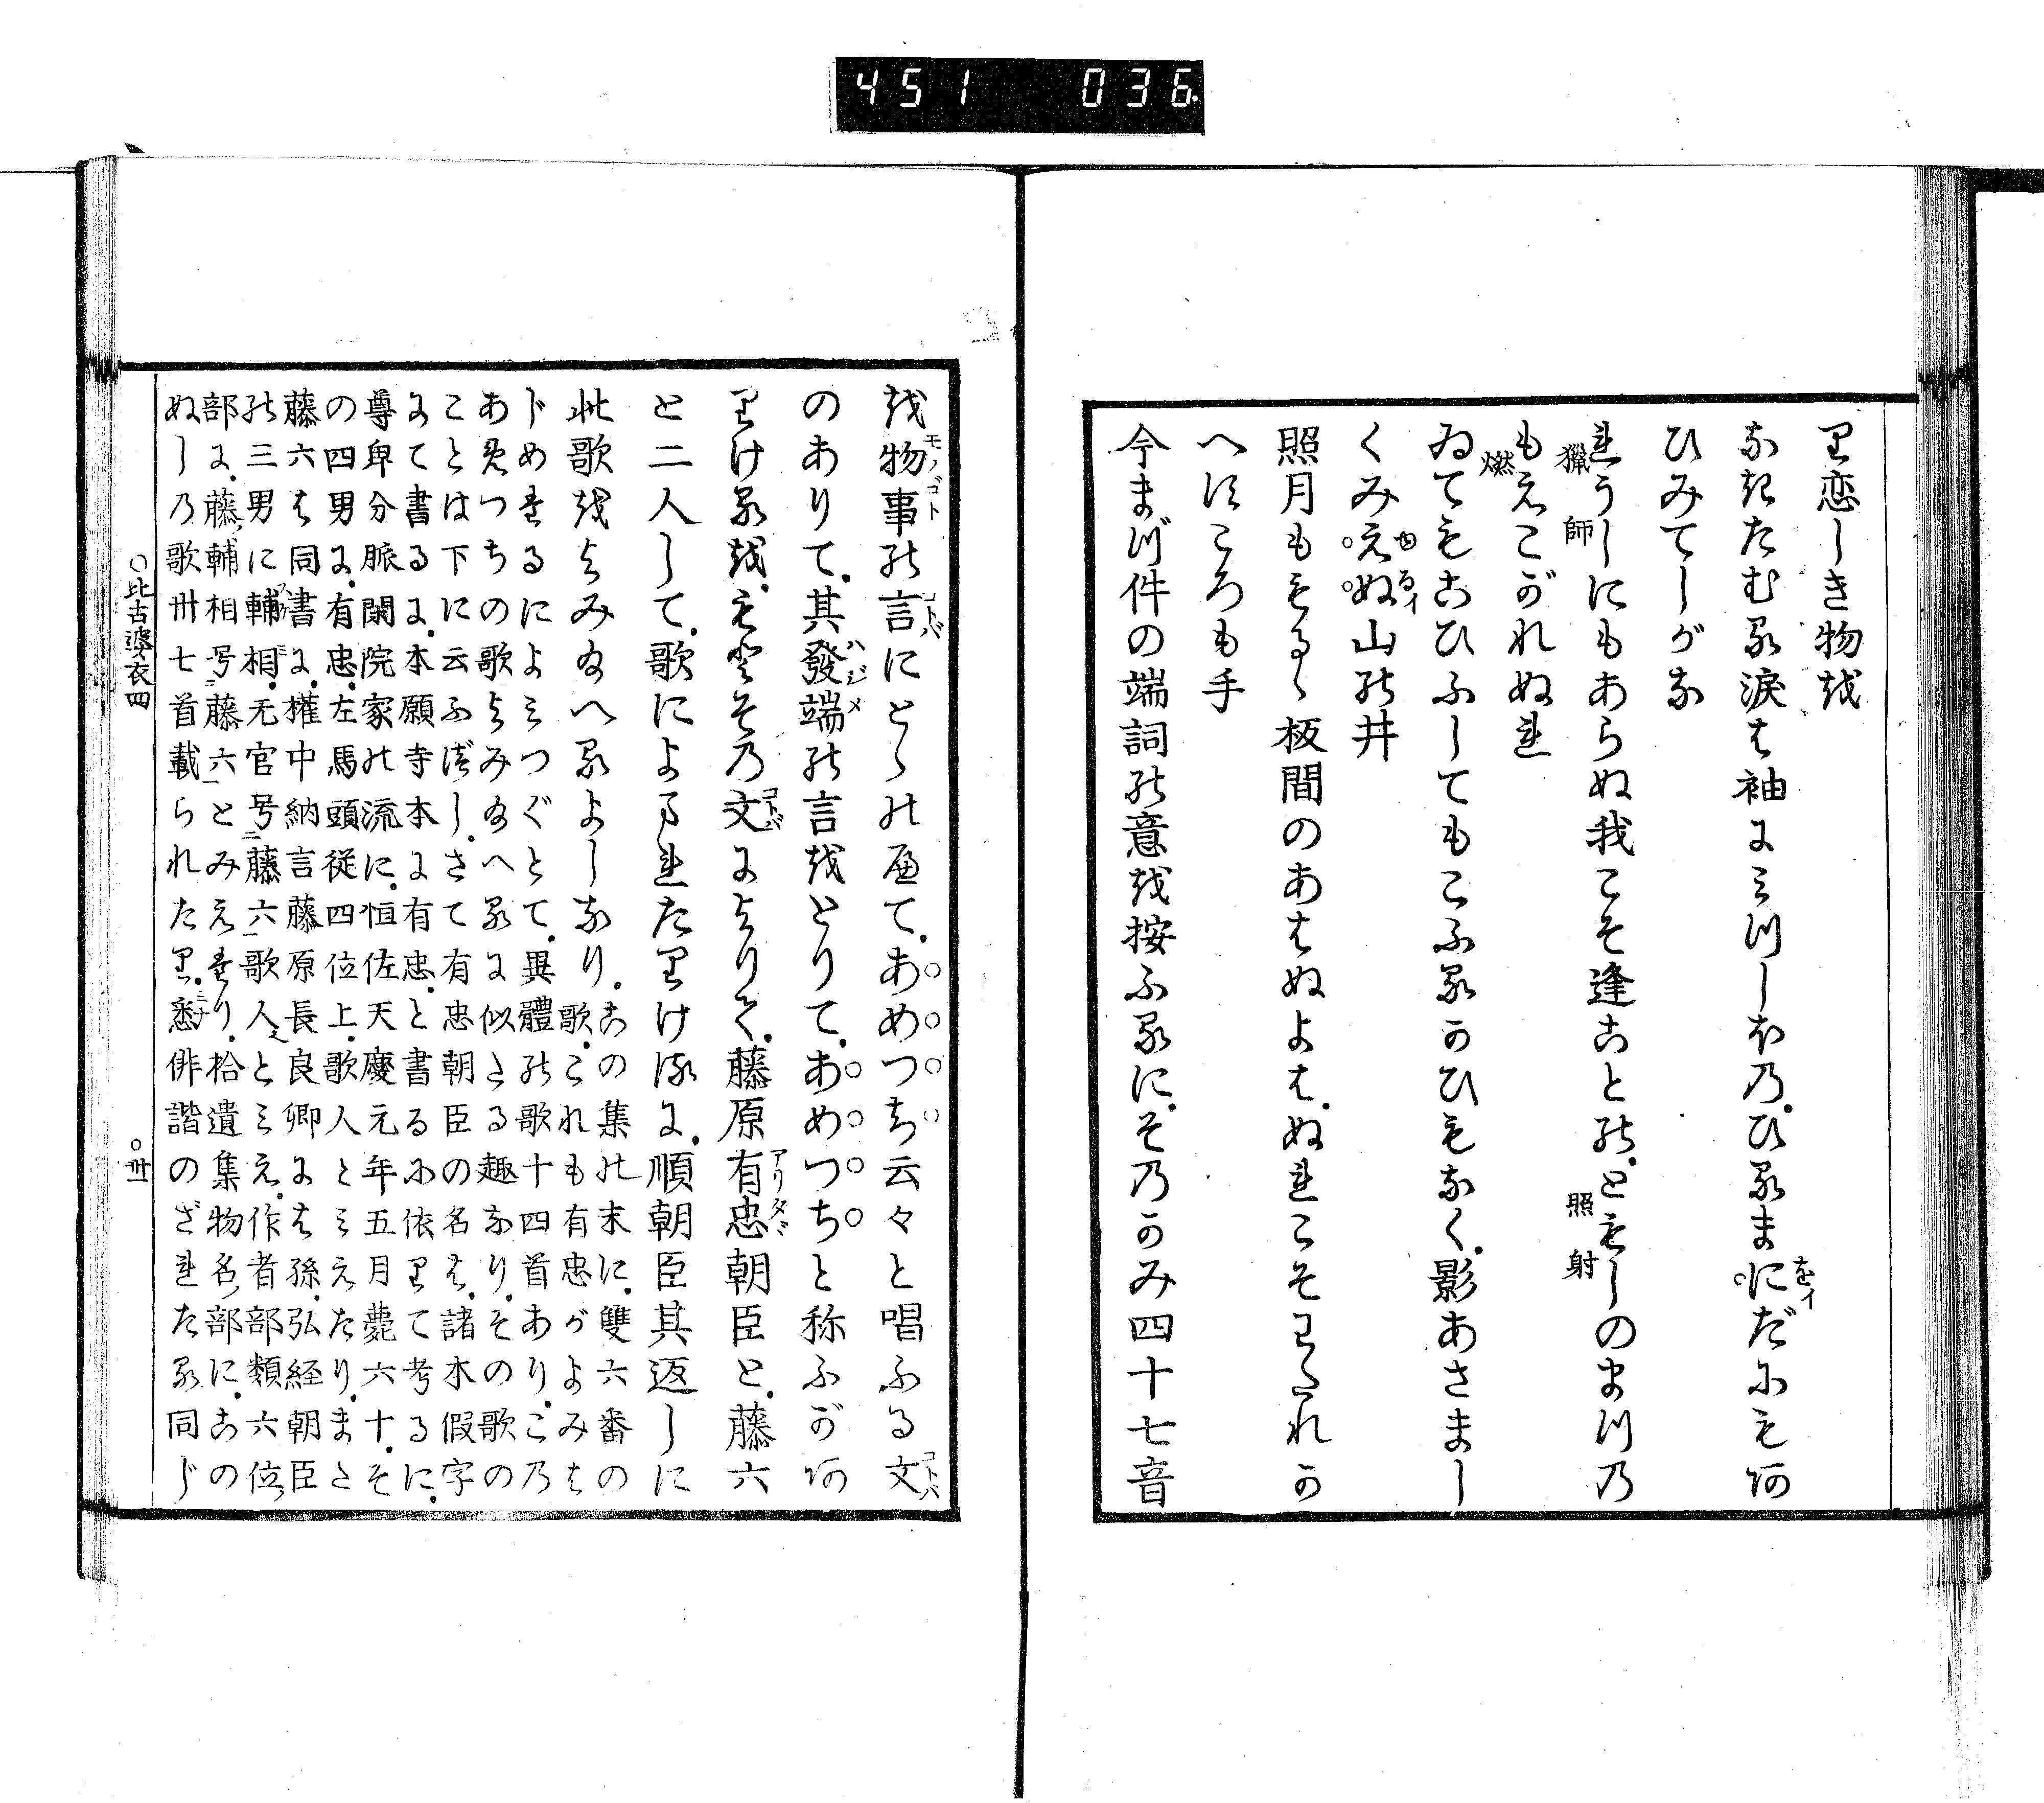 451 036
り恋しき物を
なきたむる涙は袖にみつしほのひるまにだにもあ
ひみてしがな
れうしにもあらぬ我こそ逢ことを照射のまつの
もえこがれぬれ
ゐてもこひふしてもこふるかひもなく影あさまし
くみえぬ山の井
照月ももるゝ板間のあはぬよはぬれこそわたれか
へすころも手
今まづ件の端詞の意を按ふるにそのかみ四十七音
を物事の言にとゝのへてあめつち云々と唱ふる文
のありて其發端の言をとりてあめつちと称ふがあ
りけるをもとその文によりて藤原有忠朝臣と藤六
と二人して歌によまれたりけるに順朝臣其返しに
此歌をよみ給へるよしなりこの集の末に雙六番の
歌これも有忠がよみは
じめたるによみつぐとて異體の歌十四首ありこの
あめつちの歌よみ給へるに似たる趣なりその歌の
ことは下に云ふべしさて有忠朝臣の名は諸本假字
にて書るに本願寺本に有忠と書るに依りて考るに
尊卑分脈閑院家の流に恒佐天慶元年五月薨六十そ
の四男に有忠左馬頭従四位上歌人とみえたりまた
藤六は同書に權中納言藤原長良卿には孫弘経朝臣
の三男に輔相无官号藤六歌人とみえ作者部類六位
部に藤輔相号藤六とみえたり拾遺集物名部にこの
ぬしの歌卅七首載られたり悉俳諧のざれたる同じ
○比古婆衣四 ○卅一